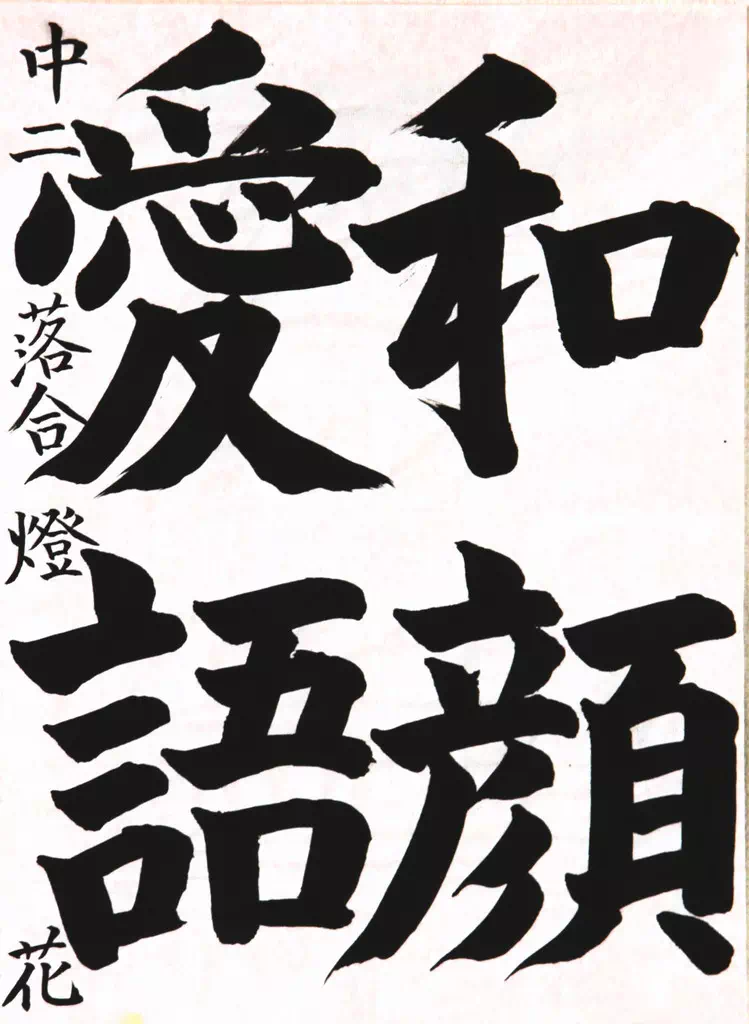 和顔
愛語
中二 落合 燈花